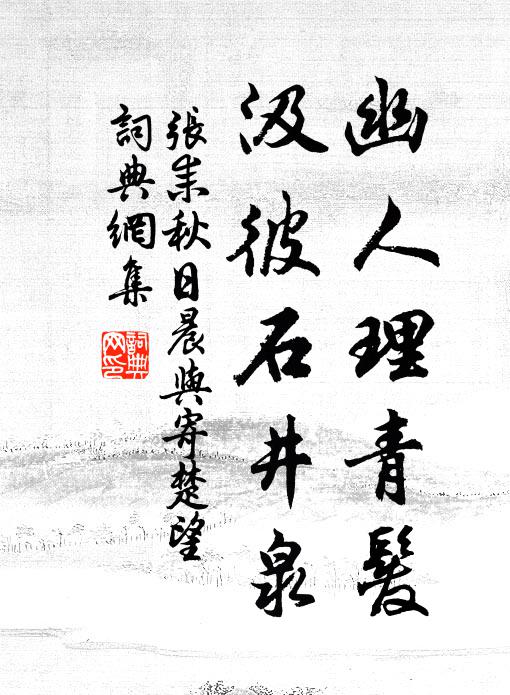 幽人理青髮
汲彼石井泉
張耒秋日晨興寄楚望
詞典網集
詞典
网印